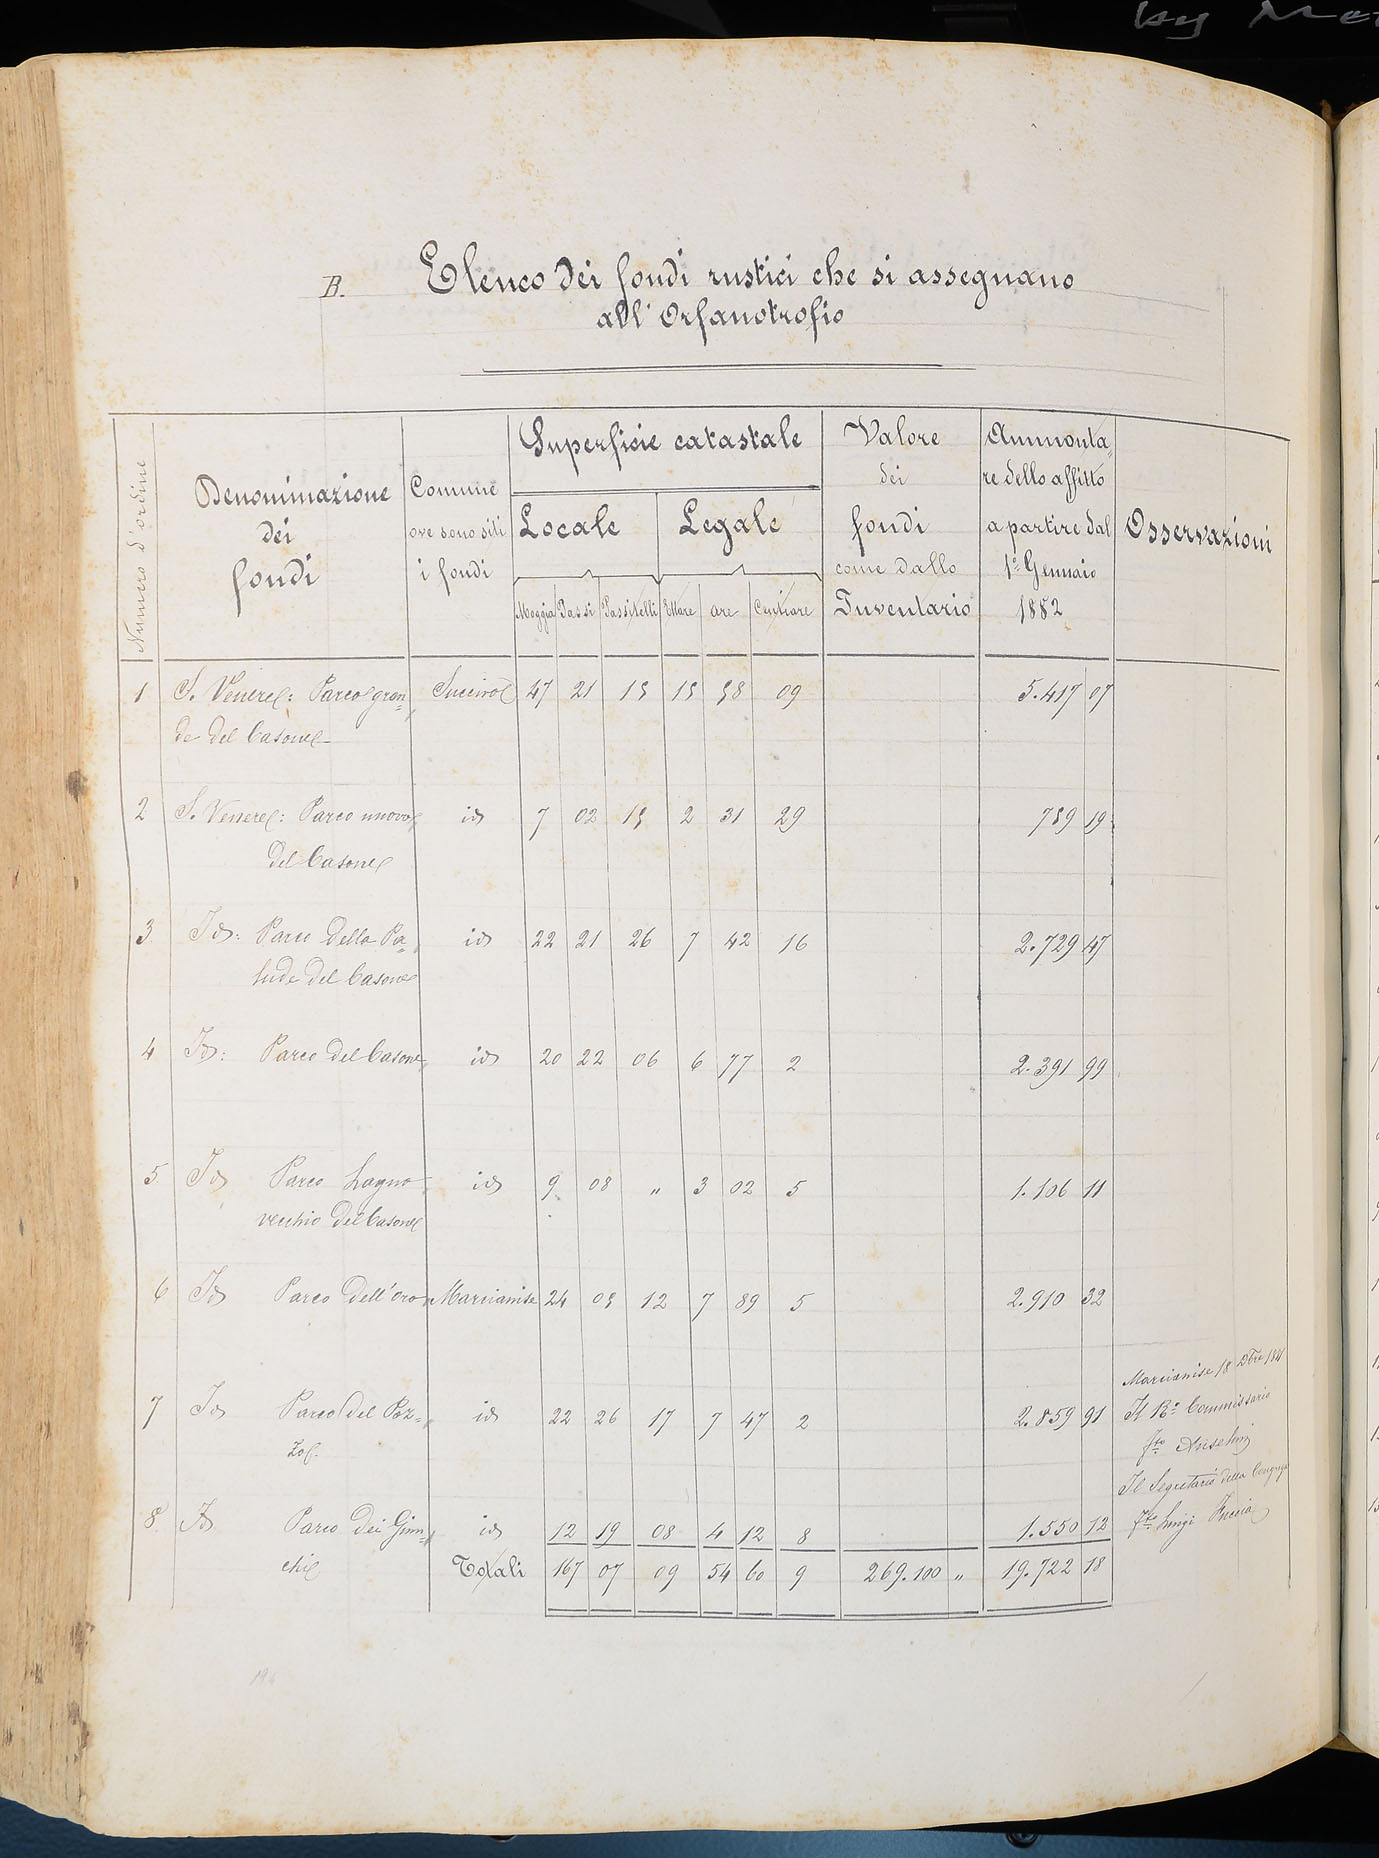 by Me
B.
Elenco dei fondi rustici che si assegnano
all' Orfanotrofio
Numero d'ordine
Denominazione
dei
fondi
Comune
ove sono siti
i fondi
Superficie catastale
Locale
Legale
Moggia Passi Passitelli Ettare are Centiare
Valore
dei
fondi
come dallo
Inventario
Ammonta=
re dello affitto
a partire dal
1° Gennaio
1882
Osservazioni
1 S. Venere: Parco gran= Succivo 47 21 15 15 58 09 5.417 07
de del Casone
2 S. Venere: Parco nuovo id 7 02 15 2 31 29 789 19
del Casone
3 Id: Parco della Pa= id 22 21 26 7 42 16 2.729 47
lude del Casone
4 Id: Parco del Casone id 20 22 06 6 77 2 2.391 99
5 Id Parco Lagno id 9 08 " 3 02 5 1.106 11
vecchio del Casone
6 Id Parco dell'oro Marcianise 24 05 12 7 89 5 2.910 32
7 Id Parco del Poz= id 22 26 17 7 47 2 2.859 91
zo
8 Id Parco dei Giun= id 12 19 08 4 12 8 1.550 12
chi
Totali 167 07 09 54 60 9 269.100 " 19.722 18
Marcianise 18 Dbre 1881
Il R° Commissario
fto
Il Segretario della Congrega
fto Luigi